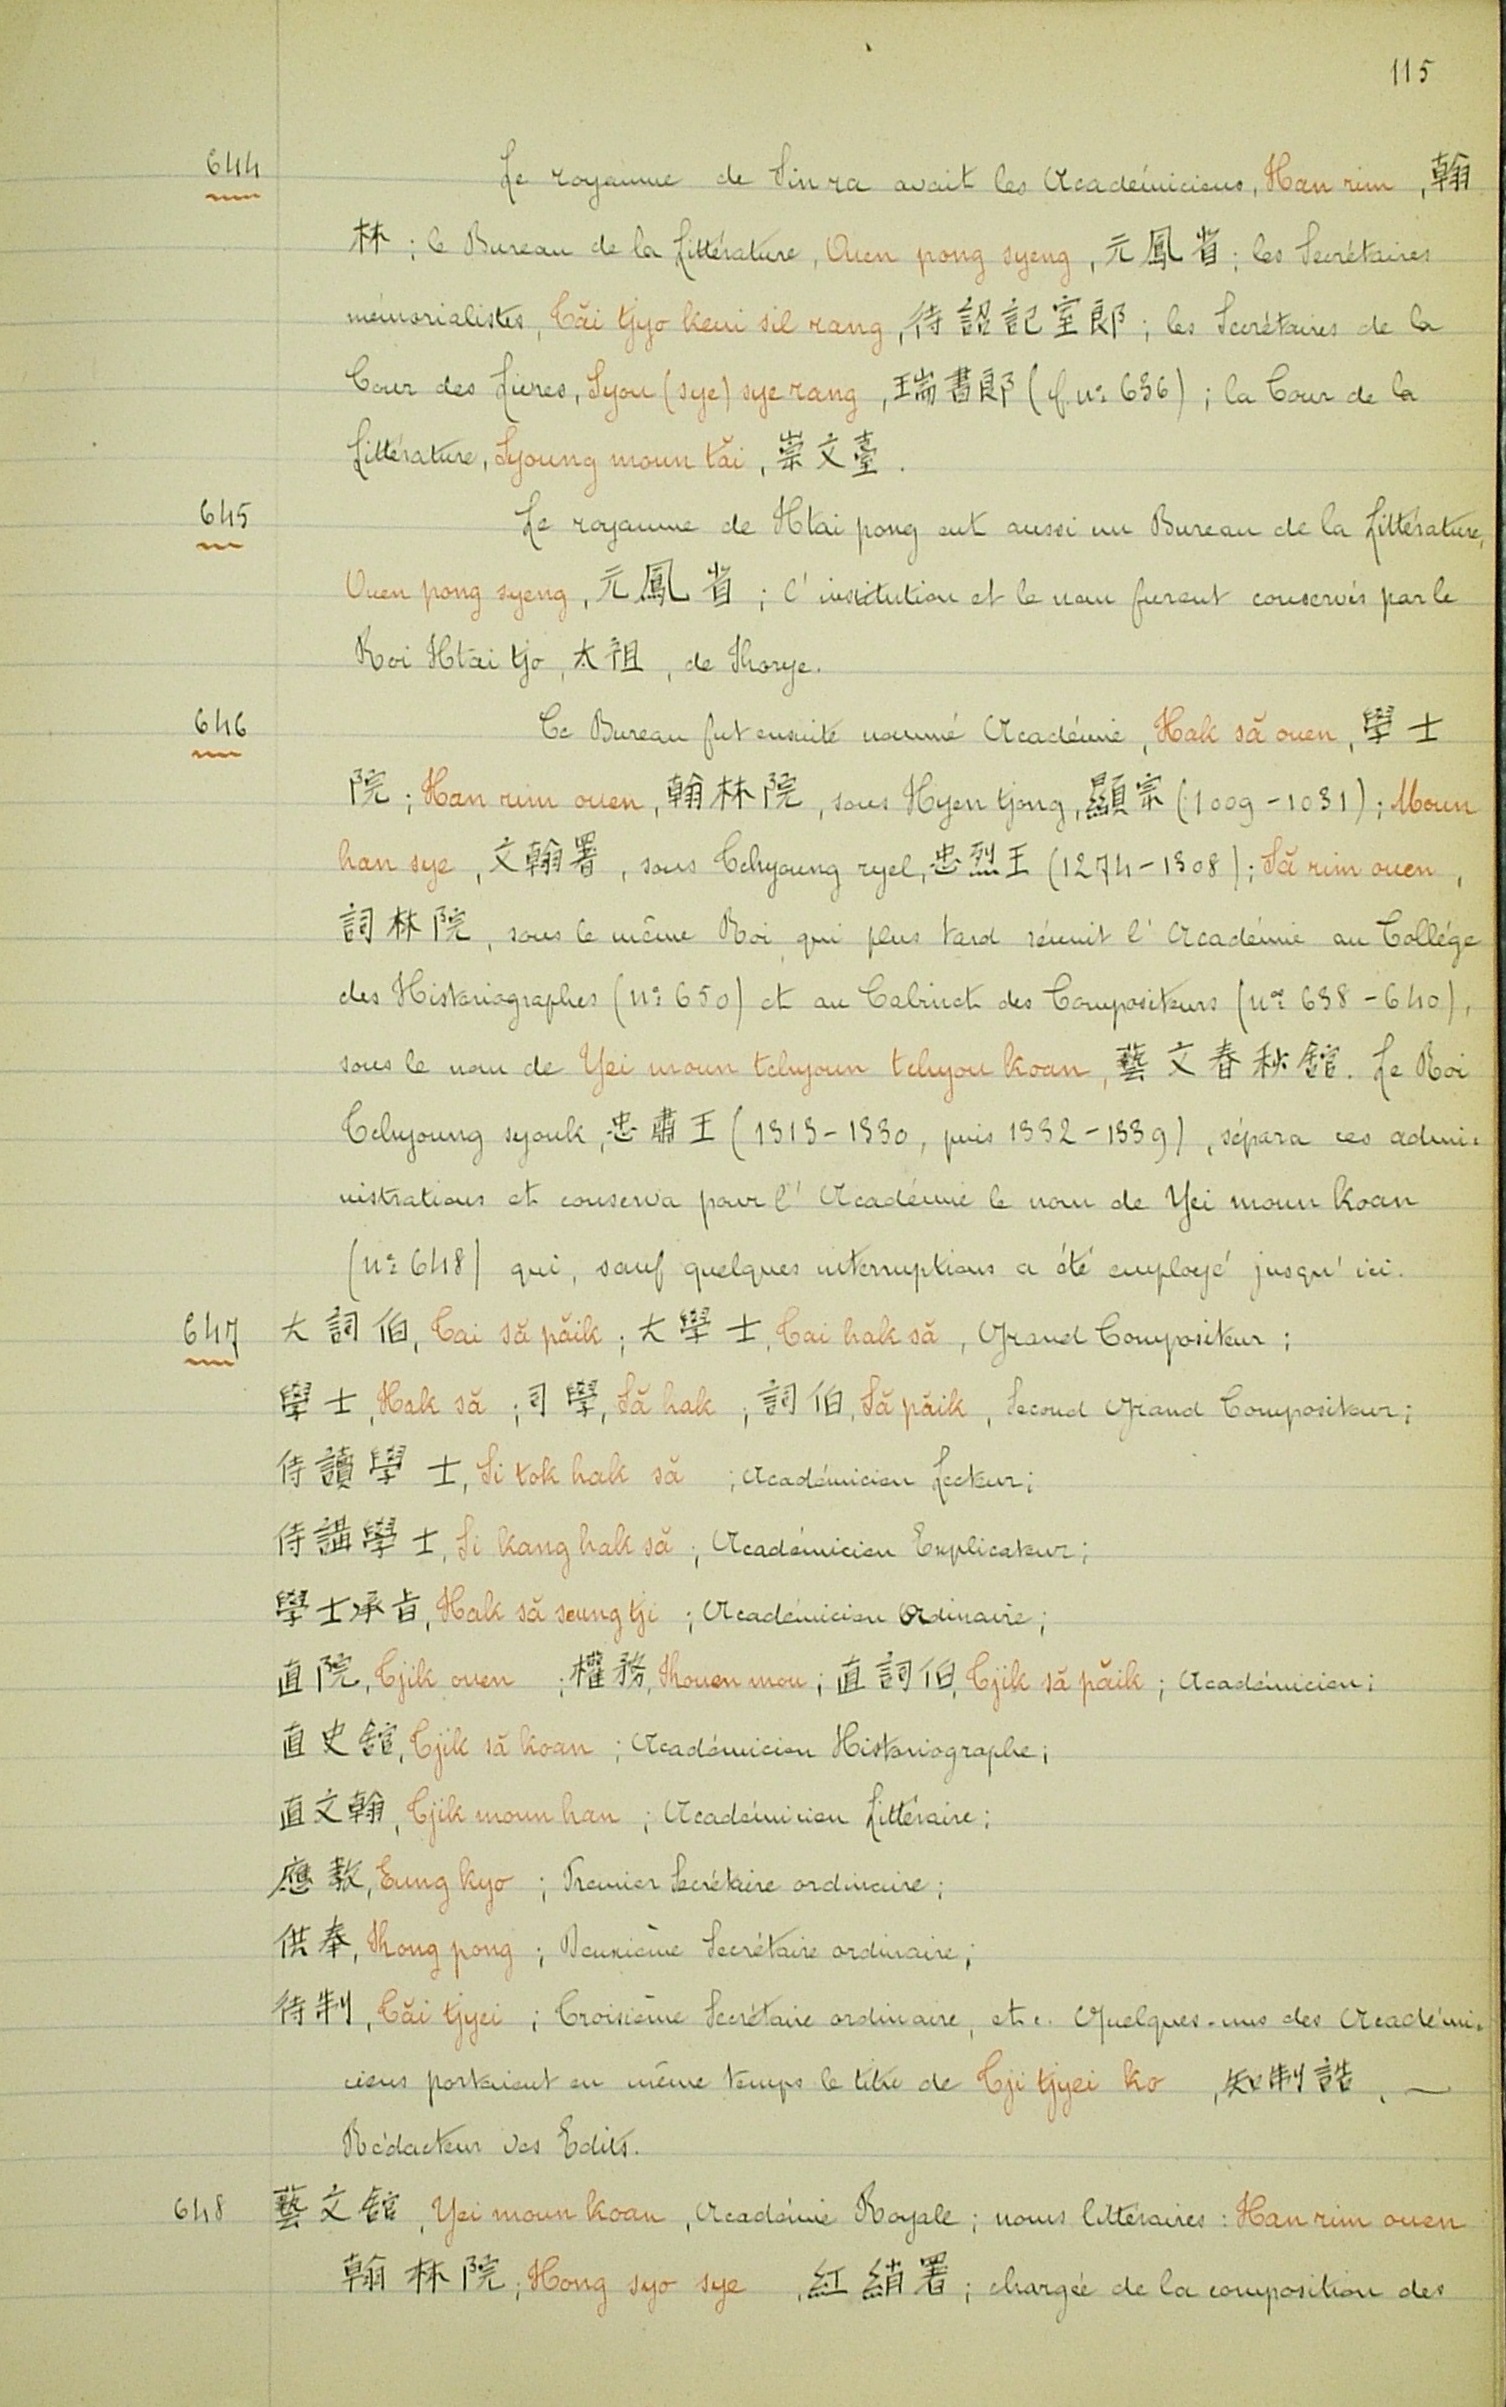 115
644 Le royaume de Sin ra avait les Académiciens, Han rim, 翰
林; le Bureau de la Littérature, Ouen pong syeng, 元鳳省; les Secrétaires
mémorialistes, Tăi tjyo keui sil rang, 待詔記室郎; les Secrétaires de la
Cour des Livres, Syou (sye) sye rang, 瑞書郎 (cf. nº 636); la Cour de la
Littérature, Syoung moun tăi, 崇文臺.
645 Le royaume de Htai pong eut aussi un Bureau de la Littérature,
Ouen pong syeng, 元鳳省; l'institution et le nom furent conservés par le
Roi Htai tjo, 太祖, de Korye.
646 Ce Bureau fut ensuite nommé Académie, Hak să ouen, 學士
院; Han rim ouen, 翰林院, sous Hyen tjong, 顯宗 (1009-1031); Moun
han sye, 文翰署, sous Tchyoung ryel, 忠烈王 (1274-1308); Să rim ouen,
詞林院, sous le même Roi, qui plus tard réunit l'Académie au Collége
des Historiographes (nº 650) et au Cabinet des Compositeurs (nos 638-640),
sous le nom de Yei moun tchyoun tchyou koan, 藝文春秋舘. Le Roi
Tchyoung syouk, 忠肅王 (1313-1330, puis 1332-1339), sépara ces admi-
nistrations et conserva pour l'Académie le nom de Yei moun koan
(nº 648) qui, sauf quelques interruptions a été employé jusqu'ici.
647 大詞伯, Tai să păik; 大學士, Tai hak să, Grand Compositeur;
學士, Hak să;司學, Să hak; 詞伯, Să păik, Second Grand Compositeur;
侍讀學士, Si tok hak să; Académicien Lecteur;
侍講學士, Si kang hak să; Académicien Explicateur;
學士承旨, Hak să seung tji; Académicien Ordinaire;
直院, Tjik ouen; 權務, Kouen mou; 直詞伯, Tjik să păik; Académicien;
直史舘, Tjik să koan; Académicien Historiographe;
直文翰, Tjik moun han; Académicien Littéraire;
應敎, Eung kyo; Premier Secrétaire ordinaire;
供奉, Kong pong; Deuxième Secrétaire ordinaire;
待制, Tăi tjyei; Troisième Secrétaire ordinaire, etc. Quelques-uns des Académi-
ciens portaient en même temps le titre de Tji tjyei ko, 知制誥, —
Rédacteur des Edits.
648 藝文舘, Yei moun koan, Académie Royale; noms littéraires: Han rim ouen
翰林院; Hong syo sye, 紅綃署; chargée de la composition des